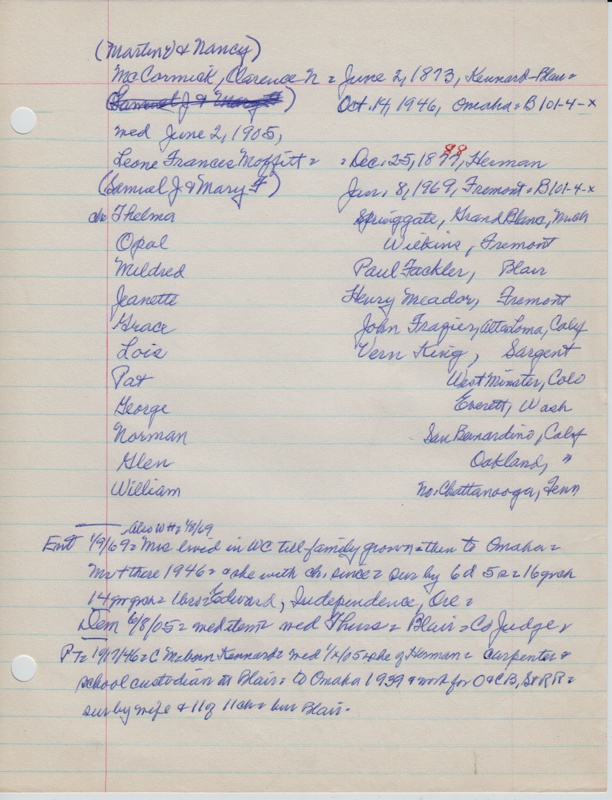 (Martin & Nancy)
McCormick, Clarence N = June 2, 1873, Kennard-Blair =
(Samuel J & Mary F) Oct. 14, 1946, Omaha = B101-4-x
med June 2, 1905,
Leone Frances Moffitt = = Dec. 25, 1877, 88 Herman
(Samuel J & Mary F) Jan. 8, 1969, Fremont = B101-4-x
ch Thelma Springgate, Grand Blanc, Mich
Opal Wilkins, Fremont
Mildred Paul Fackler, Blair
Jeanette Henry Meador, Fremont
Grace John Frazier, Alta Loma, Calif
Lois Vern King, Sargent
Pat West Minster, Colo
George Everett, Wash
Norman San Bernardino, Calif
Glen Oakland, "
William No. Chattanooga, Tenn
Also WH = 1/9/69
Ent 1/9/69 = Mrs lived in WC till family grown = then to Omaha =
Mr + there 1946 = & she with ch. since = sur by 6 d 5 s = 16 grch
14 gr grch = 1 bro = Edward, Independence, Ore =
Dem 6/8/05 = med item = med Thurs = Blair = Co Judge =
PT = 10/17/46 = C M = born Kennard = med 1/2/05 = she of Herman = carpenter =
school custodian at Blair = to Omaha 1939 & work for O & CB, St RR =
sur by wife & 11 of 11 ch = bur Blair -